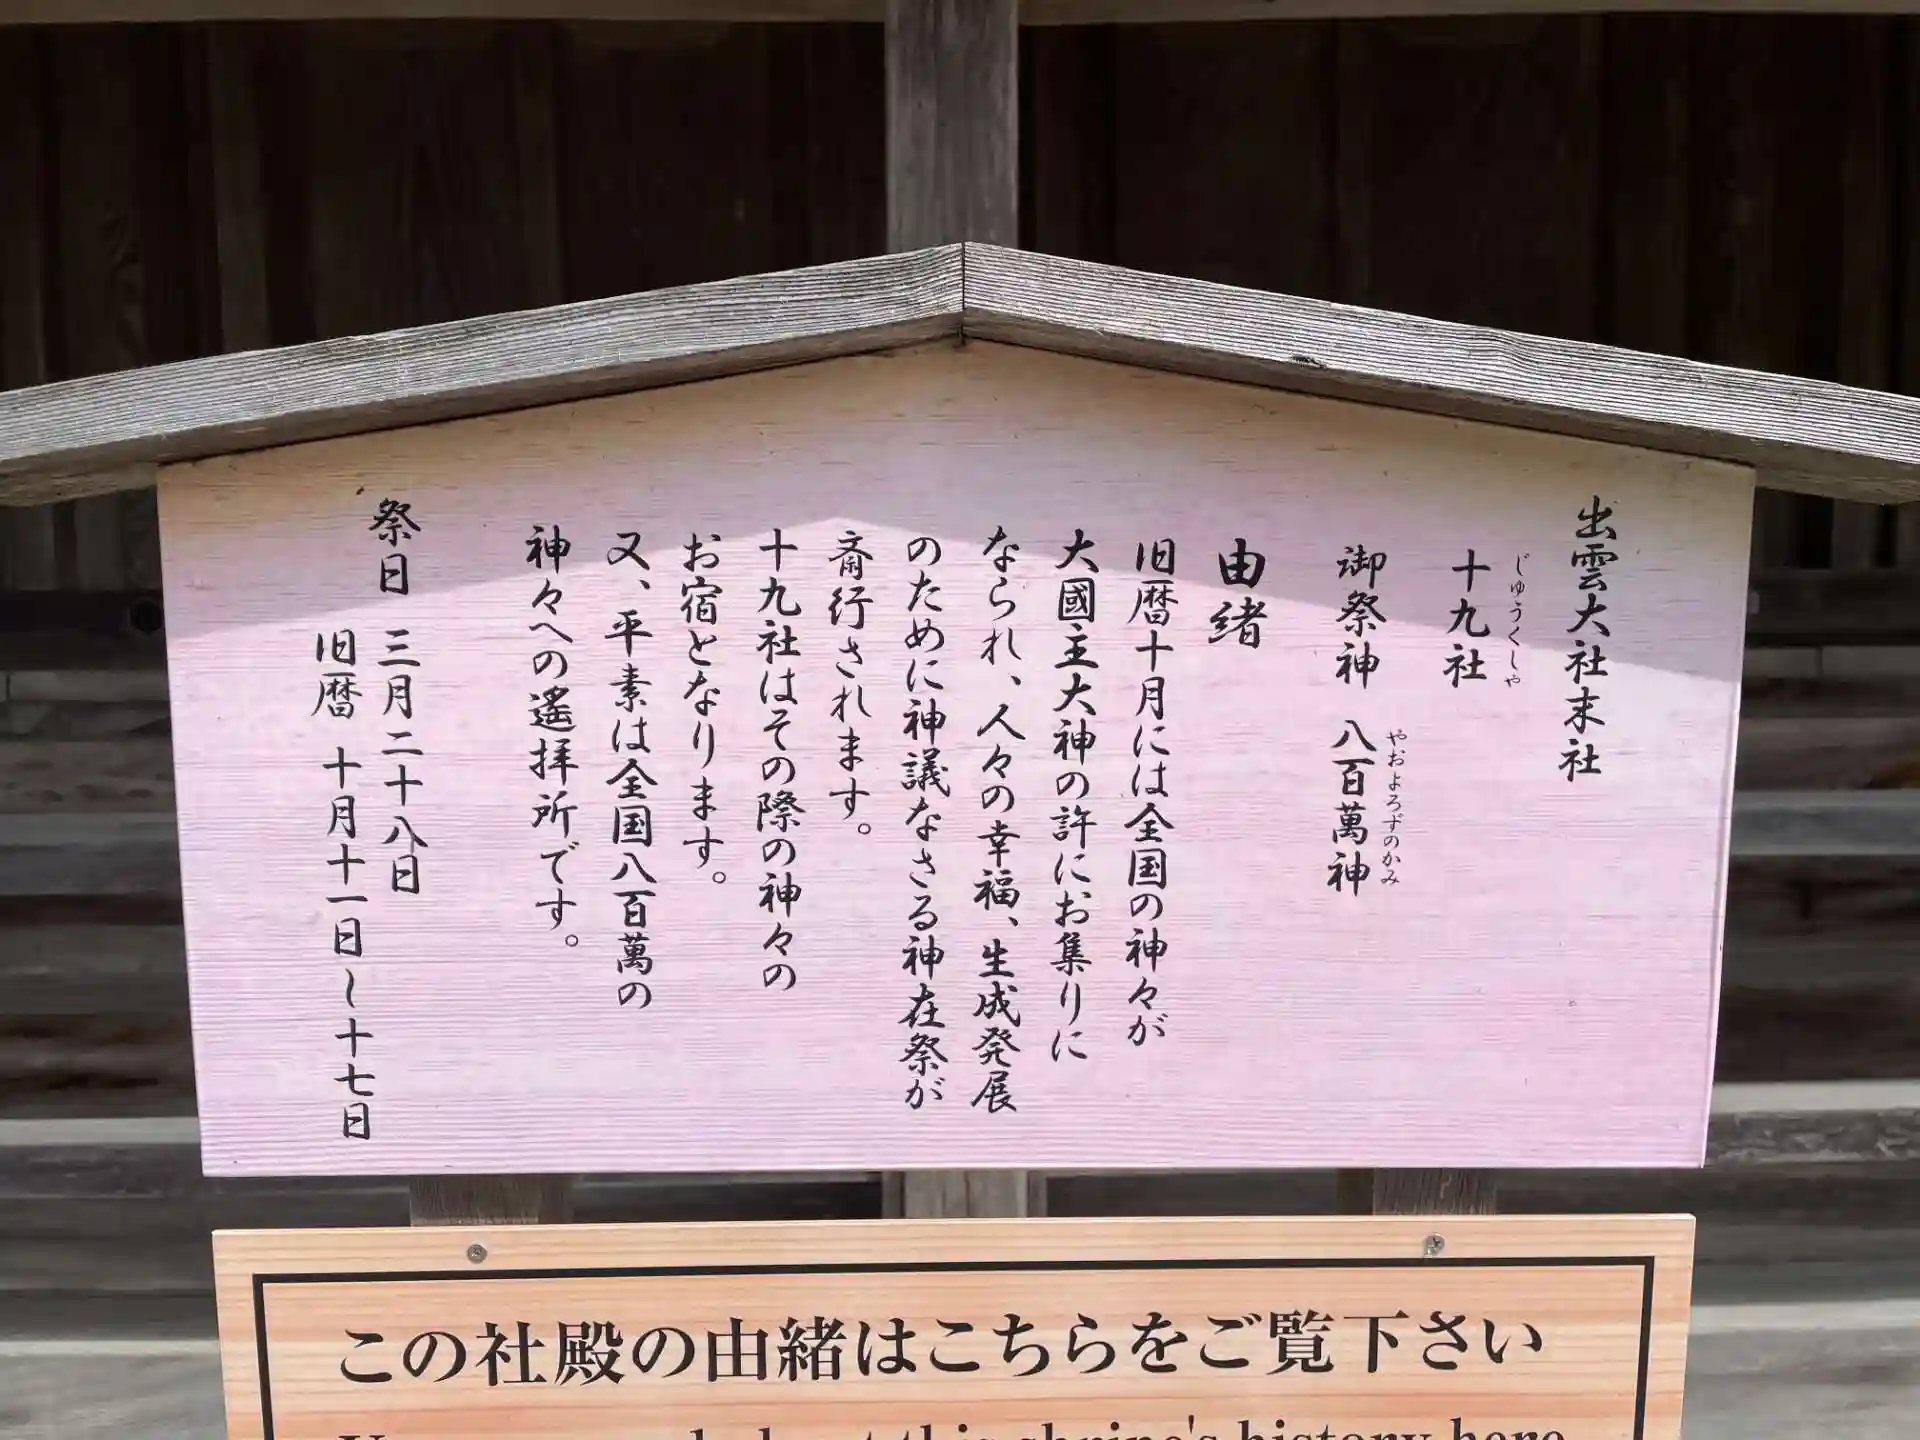 出雲大社末社
十九社
じゅうくしゃ
御祭神 八百萬神
やおよろずのかみ
由緒
旧暦十月には全国の神々が
大國主大神の許にお集りに
なられ、人々の幸福、生成発展
のために神議なさる神在祭が
斎行されます。
十九社はその際の神々の
お宿となります。
又、平素は全国八百萬の
神々への遙拝所です。
祭日 三月二十八日
旧暦 十月十一日~十七日
この社殿の由緒はこちらをご覧下さい
this shrine's history here